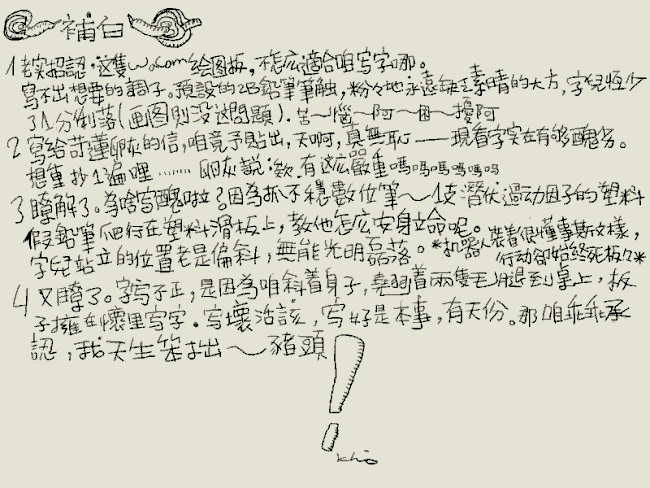 補白
1 老實招認，這隻wacom绘图板，不怎広適合咱写字哪。
寫不出想要的調子。預設的2B鉛筆筆觸，粉粉地永遠缺乏素晴的大方，字兒恆少
了1分俐落(画图則没这問題)。苦～惱～阿～困～擾阿
2 寫給苛蓮卵灰的信，咱竟予貼出，天啊，真無恥——現看字实在有够醜劣。
想重抄1遍哩⋯⋯⋯卵灰說：欸，有这広嚴重嗎嗎嗎嗎嗎嗎
3 瞭解了。為啥寫醜啦？因為抓不穩數位筆～1支潛伏過动因子的塑料
假鉛筆爬行在塑料滑板上，教他怎広安身立命呢。
字兒站立的位置老是偏斜，無能光明磊落。*机器人裝着很懂事斯文樣，
行动卻始終死板々*
4 又瞭了。字写不正，是因為咱斜着身子，翹着兩隻毛腿到桌上，板
子擁在懷里写字。写壞活該，写好是本事，有天份。那咱乖乖承
認，我天生笨拙～豬頭！
khio